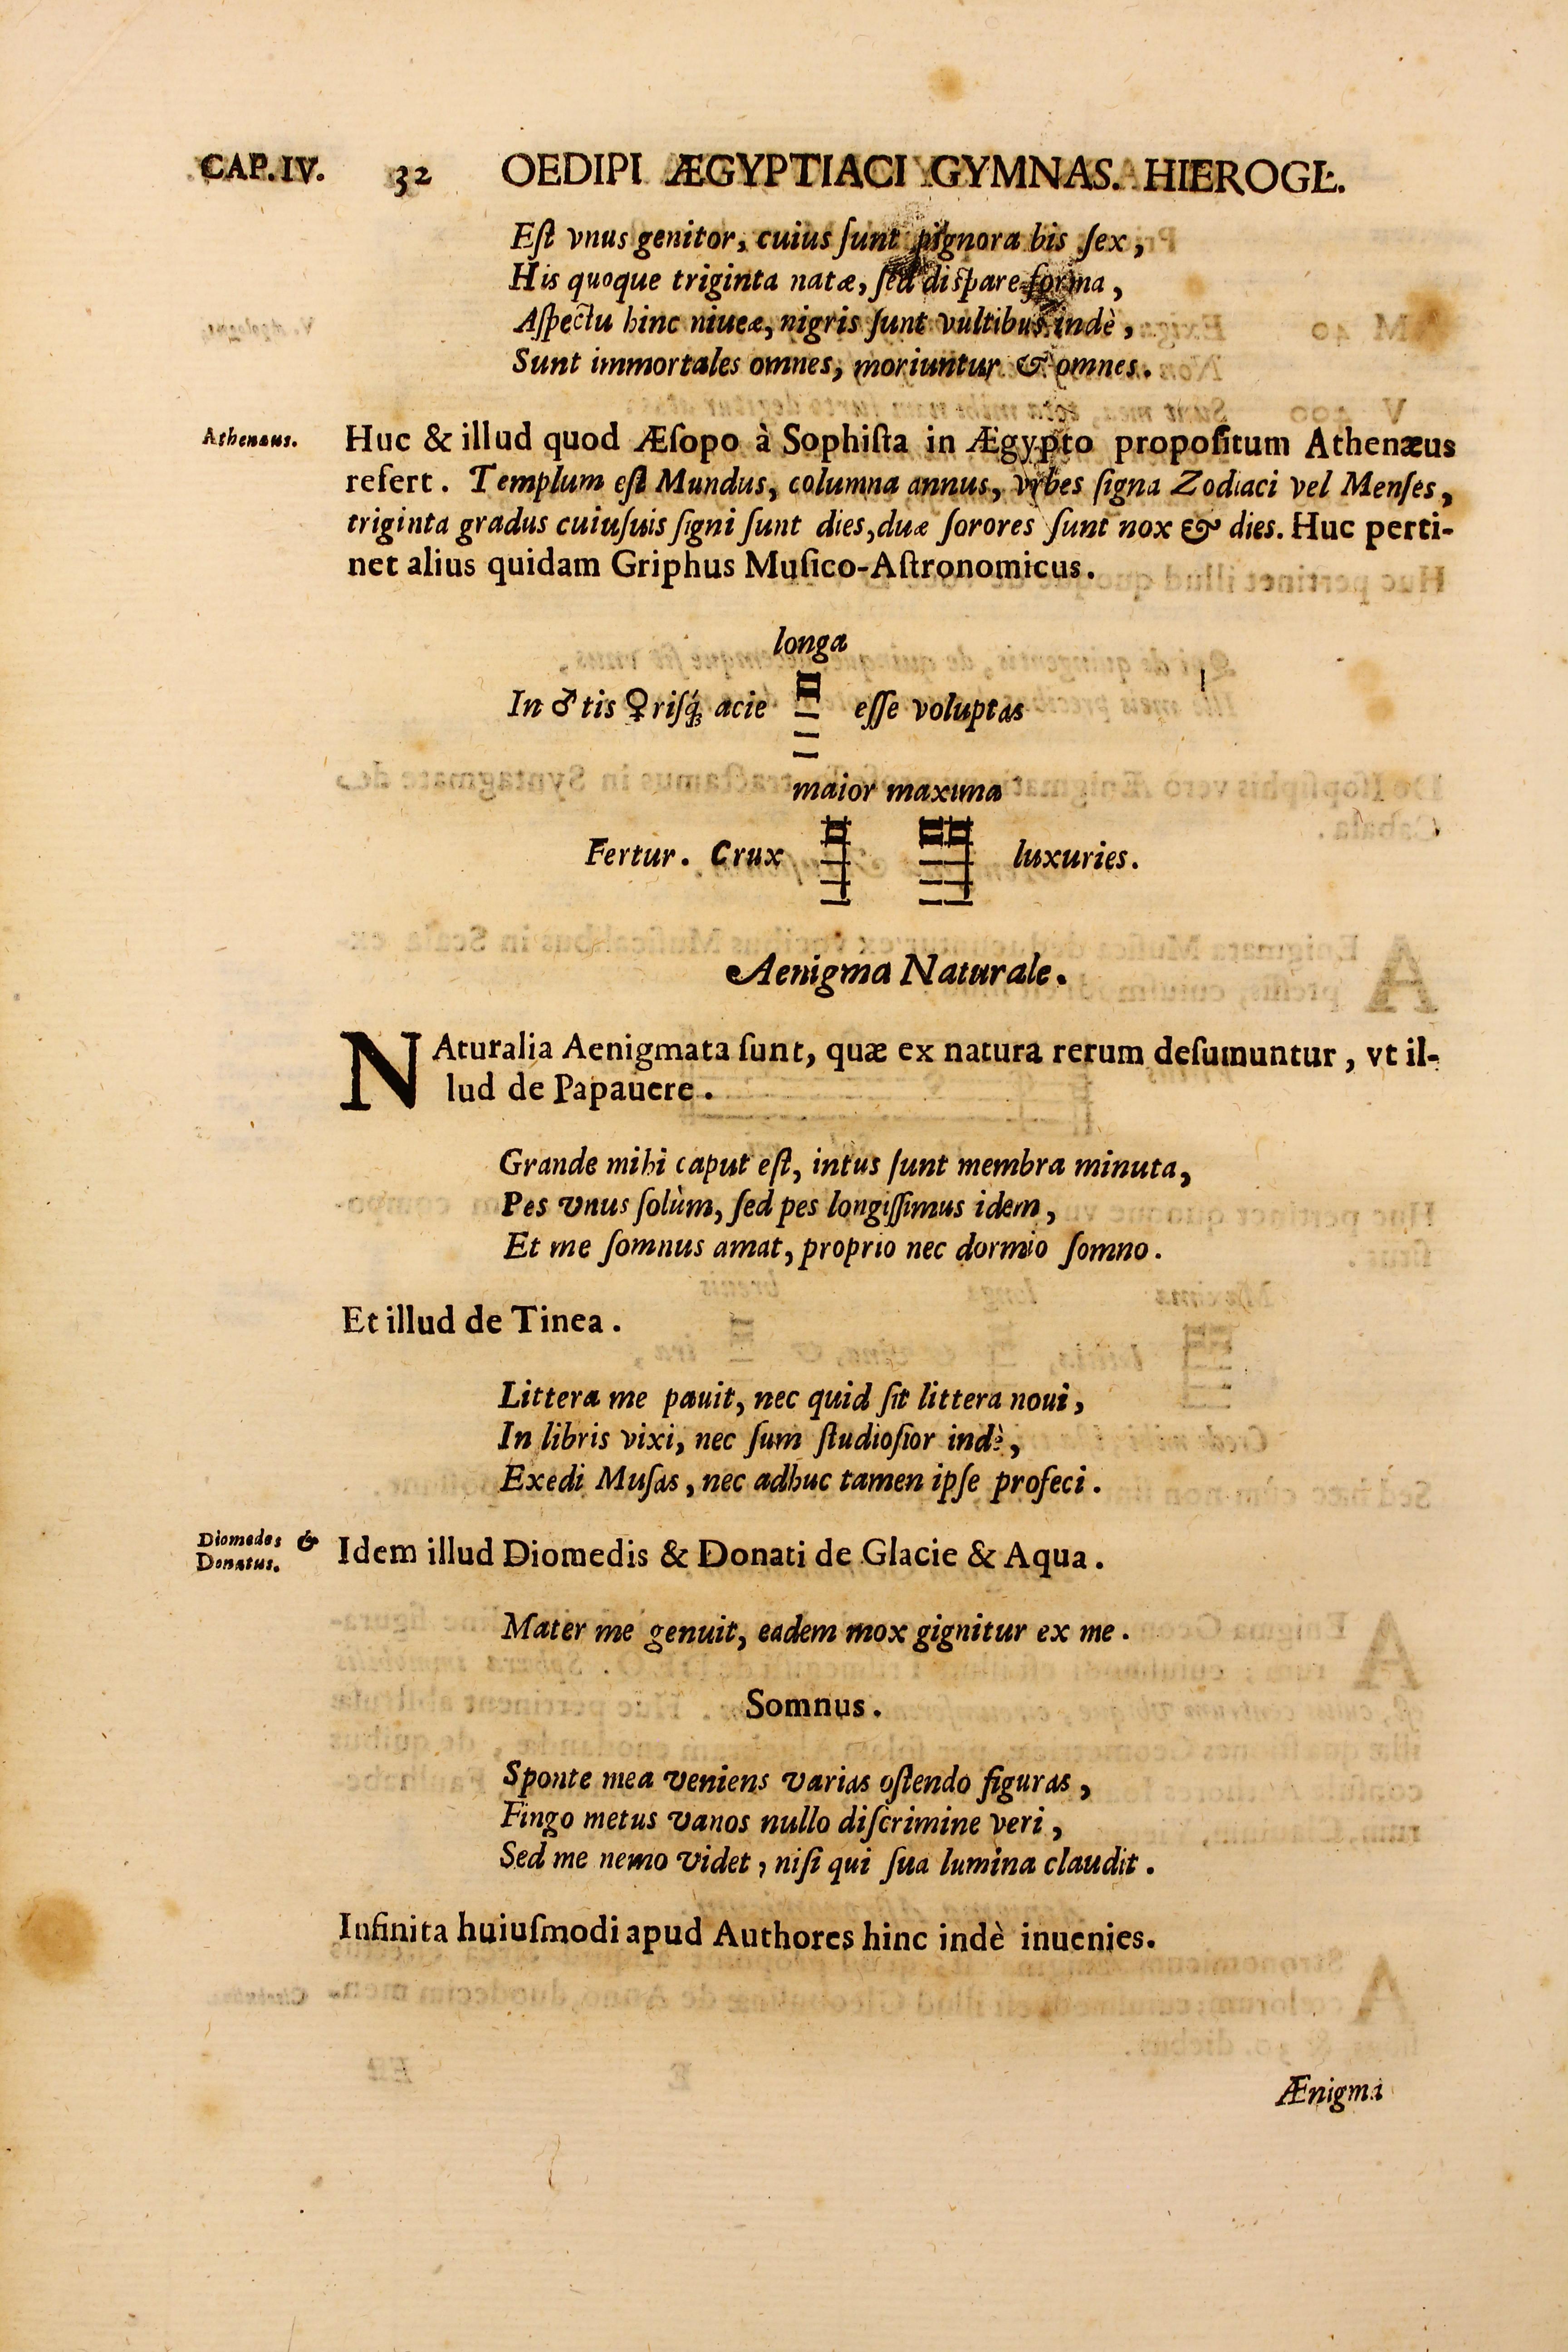 CAP. IV. 32 OEDIPI ÆGYPTIACI GYMNAS. HIEROGL.
Eſt vnus genitor, cuius ſunt pignora bis ſex,
His quoque triginta natæ, ſed diſpare forma,
Aſpectu hinc niueæ, nigris ſunt vultibus indè,
Sunt immortales omnes, moriuntur & omnes.
Athenæus.
Huc & illud quod Æſopo à Sophiſta in Ægypto propoſitum Athenæus
refert. Templum eſt Mundus, columna annus, vrbes ſigna Zodiaci vel Menſes,
triginta gradus cuiuſuis ſigni ſunt dies, duæ ſorores ſunt nox & dies. Huc perti-
net alius quidam Griphus Muſico-Aſtronomicus.
longa
In ♂tis ♀riſq́; acie eſſe voluptas
maior maxima
Fertur. Crux luxuries.
Aenigma Naturale.
NAturalia Aenigmata ſunt, quæ ex natura rerum deſumuntur, vt il-
lud de Papauere.
Grande mihi caput eſt, intus ſunt membra minuta,
Pes vnus ſolùm, ſed pes longiſſimus idem,
Et me ſomnus amat, proprio nec dormio ſomno.
Et illud de Tinea.
Littera me pauit, nec quid ſit littera noui,
In libris vixi, nec ſum ſtudioſior indè,
Exedi Muſas, nec adhuc tamen ipſe profeci.
Diomedes &
Donatus.
Idem illud Diomedis & Donati de Glacie & Aqua.
Mater me genuit, eadem mox gignitur ex me.
Somnus.
Sponte mea veniens varias oſtendo figuras,
Fingo metus vanos nullo diſcrimine veri,
Sed me nemo videt, niſi qui ſua lumina claudit.
Infinita huiuſmodi apud Authores hinc indè inuenies.
Ænigma